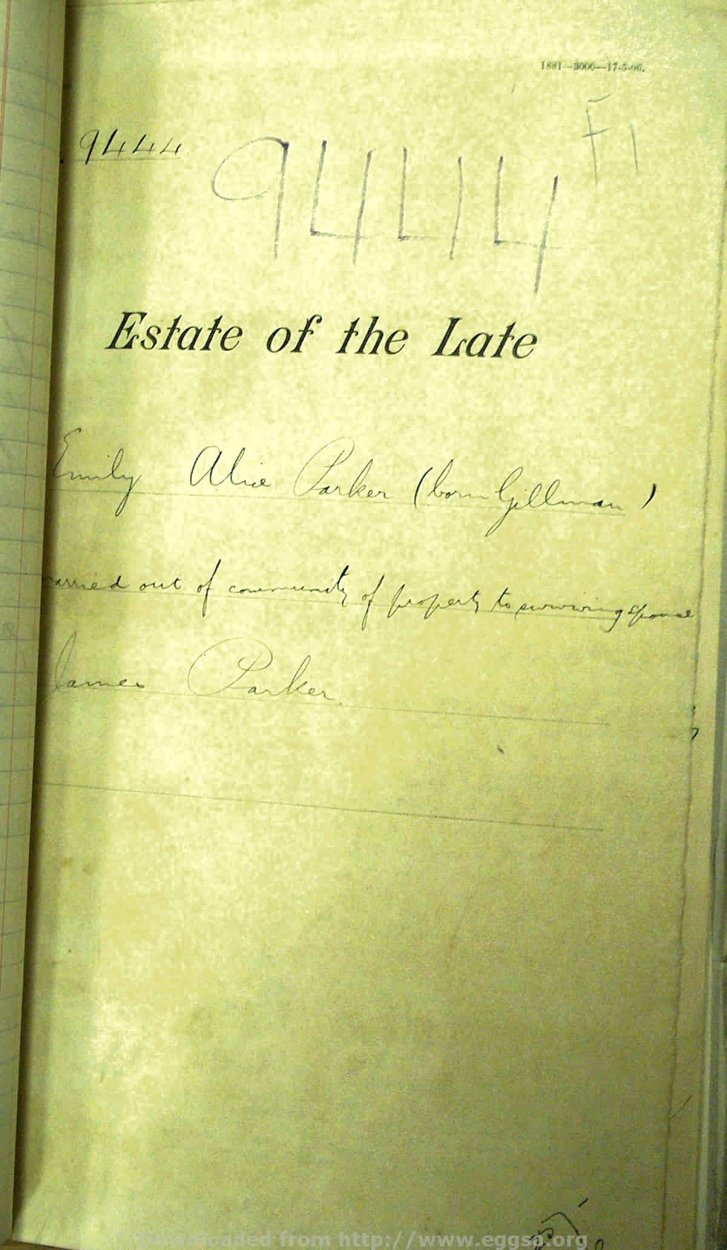 1881—3000—17-5-06.
F1
9444
9444
Estate of the Late
Emily Alice Parker (born Gillman)
married out of community of property to surviving spouse
James Parker.
Downloaded from http://www.eggsa.org